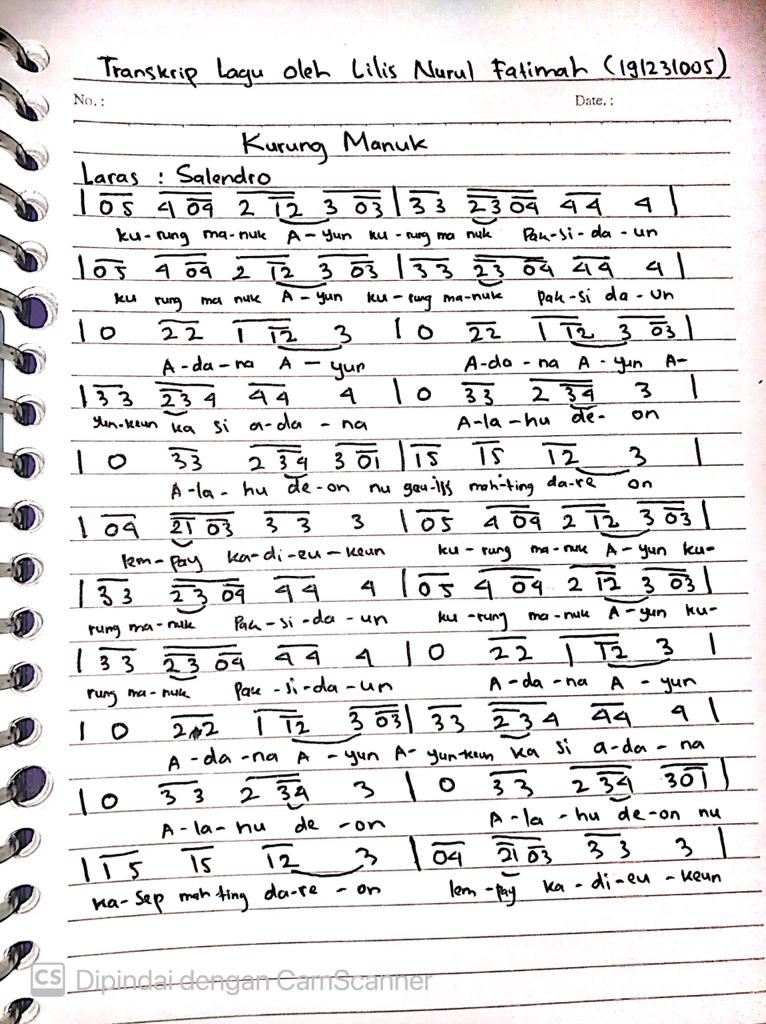 Transkrip Lagu oleh Lilis Nurul Fatimah (191231005)
No. : Date. :
Kurung Manuk
Laras : Salendro
| 05 4 04 2 12 3 03 | 33 23 04 44 4 |
ku-rung ma-nuk A-yun ku-rung ma nuk Pak-si-da-un
| 05 4 04 2 12 3 03 | 33 23 04 44 4 |
ku rung ma nuk A-yun ku-rung ma-nuk pak-si da-un
| 0 22 1 12 3 | 0 22 1 12 3 03 |
A-da-na A-yun A-da-na A-yun A-
| 33 234 44 4 | 0 33 2 34 3 |
yun-keun ka si a-da-na A-la-hu de-on
| 0 33 2 34 3 01 | 15 15 12 3 |
A-la-hu de-on nu mah-ting da-re on
| 04 21 03 33 3 | 05 4 04 2 12 3 03 |
lem-pay ka-di-eu-keun ku-rung ma-nuk A-yun ku-
| 33 23 04 44 4 | 05 4 04 2 12 3 03 |
rung ma-nuk Pak-si-da-un ku-rung ma-nuk A-yun ku-
| 33 23 04 44 4 | 0 22 1 12 3 |
rung ma-nuk pak-si-da-un A-da-na A-yun
| 0 22 1 12 3 03 | 33 234 44 4 |
A-da-na A-yun A-yun-keun ka si a-da-na
| 0 33 2 34 3 | 0 33 2 34 301 |
A-la-hu de-on A-la-hu de-on nu
| 15 15 12 3 | 04 21 03 33 3 |
ka-sep mah ting da-re-on lem-pay ka-di-eu-keun
CS Dipindai dengan CamScanner